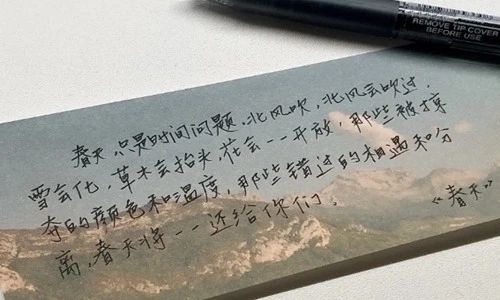 REMOVE TIP COVER
BEFORE USE
春天,只是时间问题.北风吹,北风会吹过,
雪会化,草木会抬头,花会一一开放,那些被掠
夺的颜色和温度,那些错过的相遇和分
离,春天将一一还给你们。
《春天》